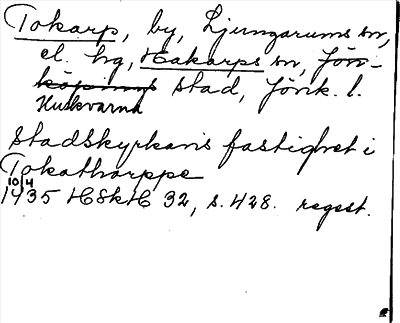 Tokarp, by, Ljungarums sn,
el. hg, Hakarps sn, Jön-
köpings stad, Jönk. l.
Huskvarna
stadskyrkans fastighet i
Tokathorppe
10/4
1435 HSkH 32, s. 428. regest.